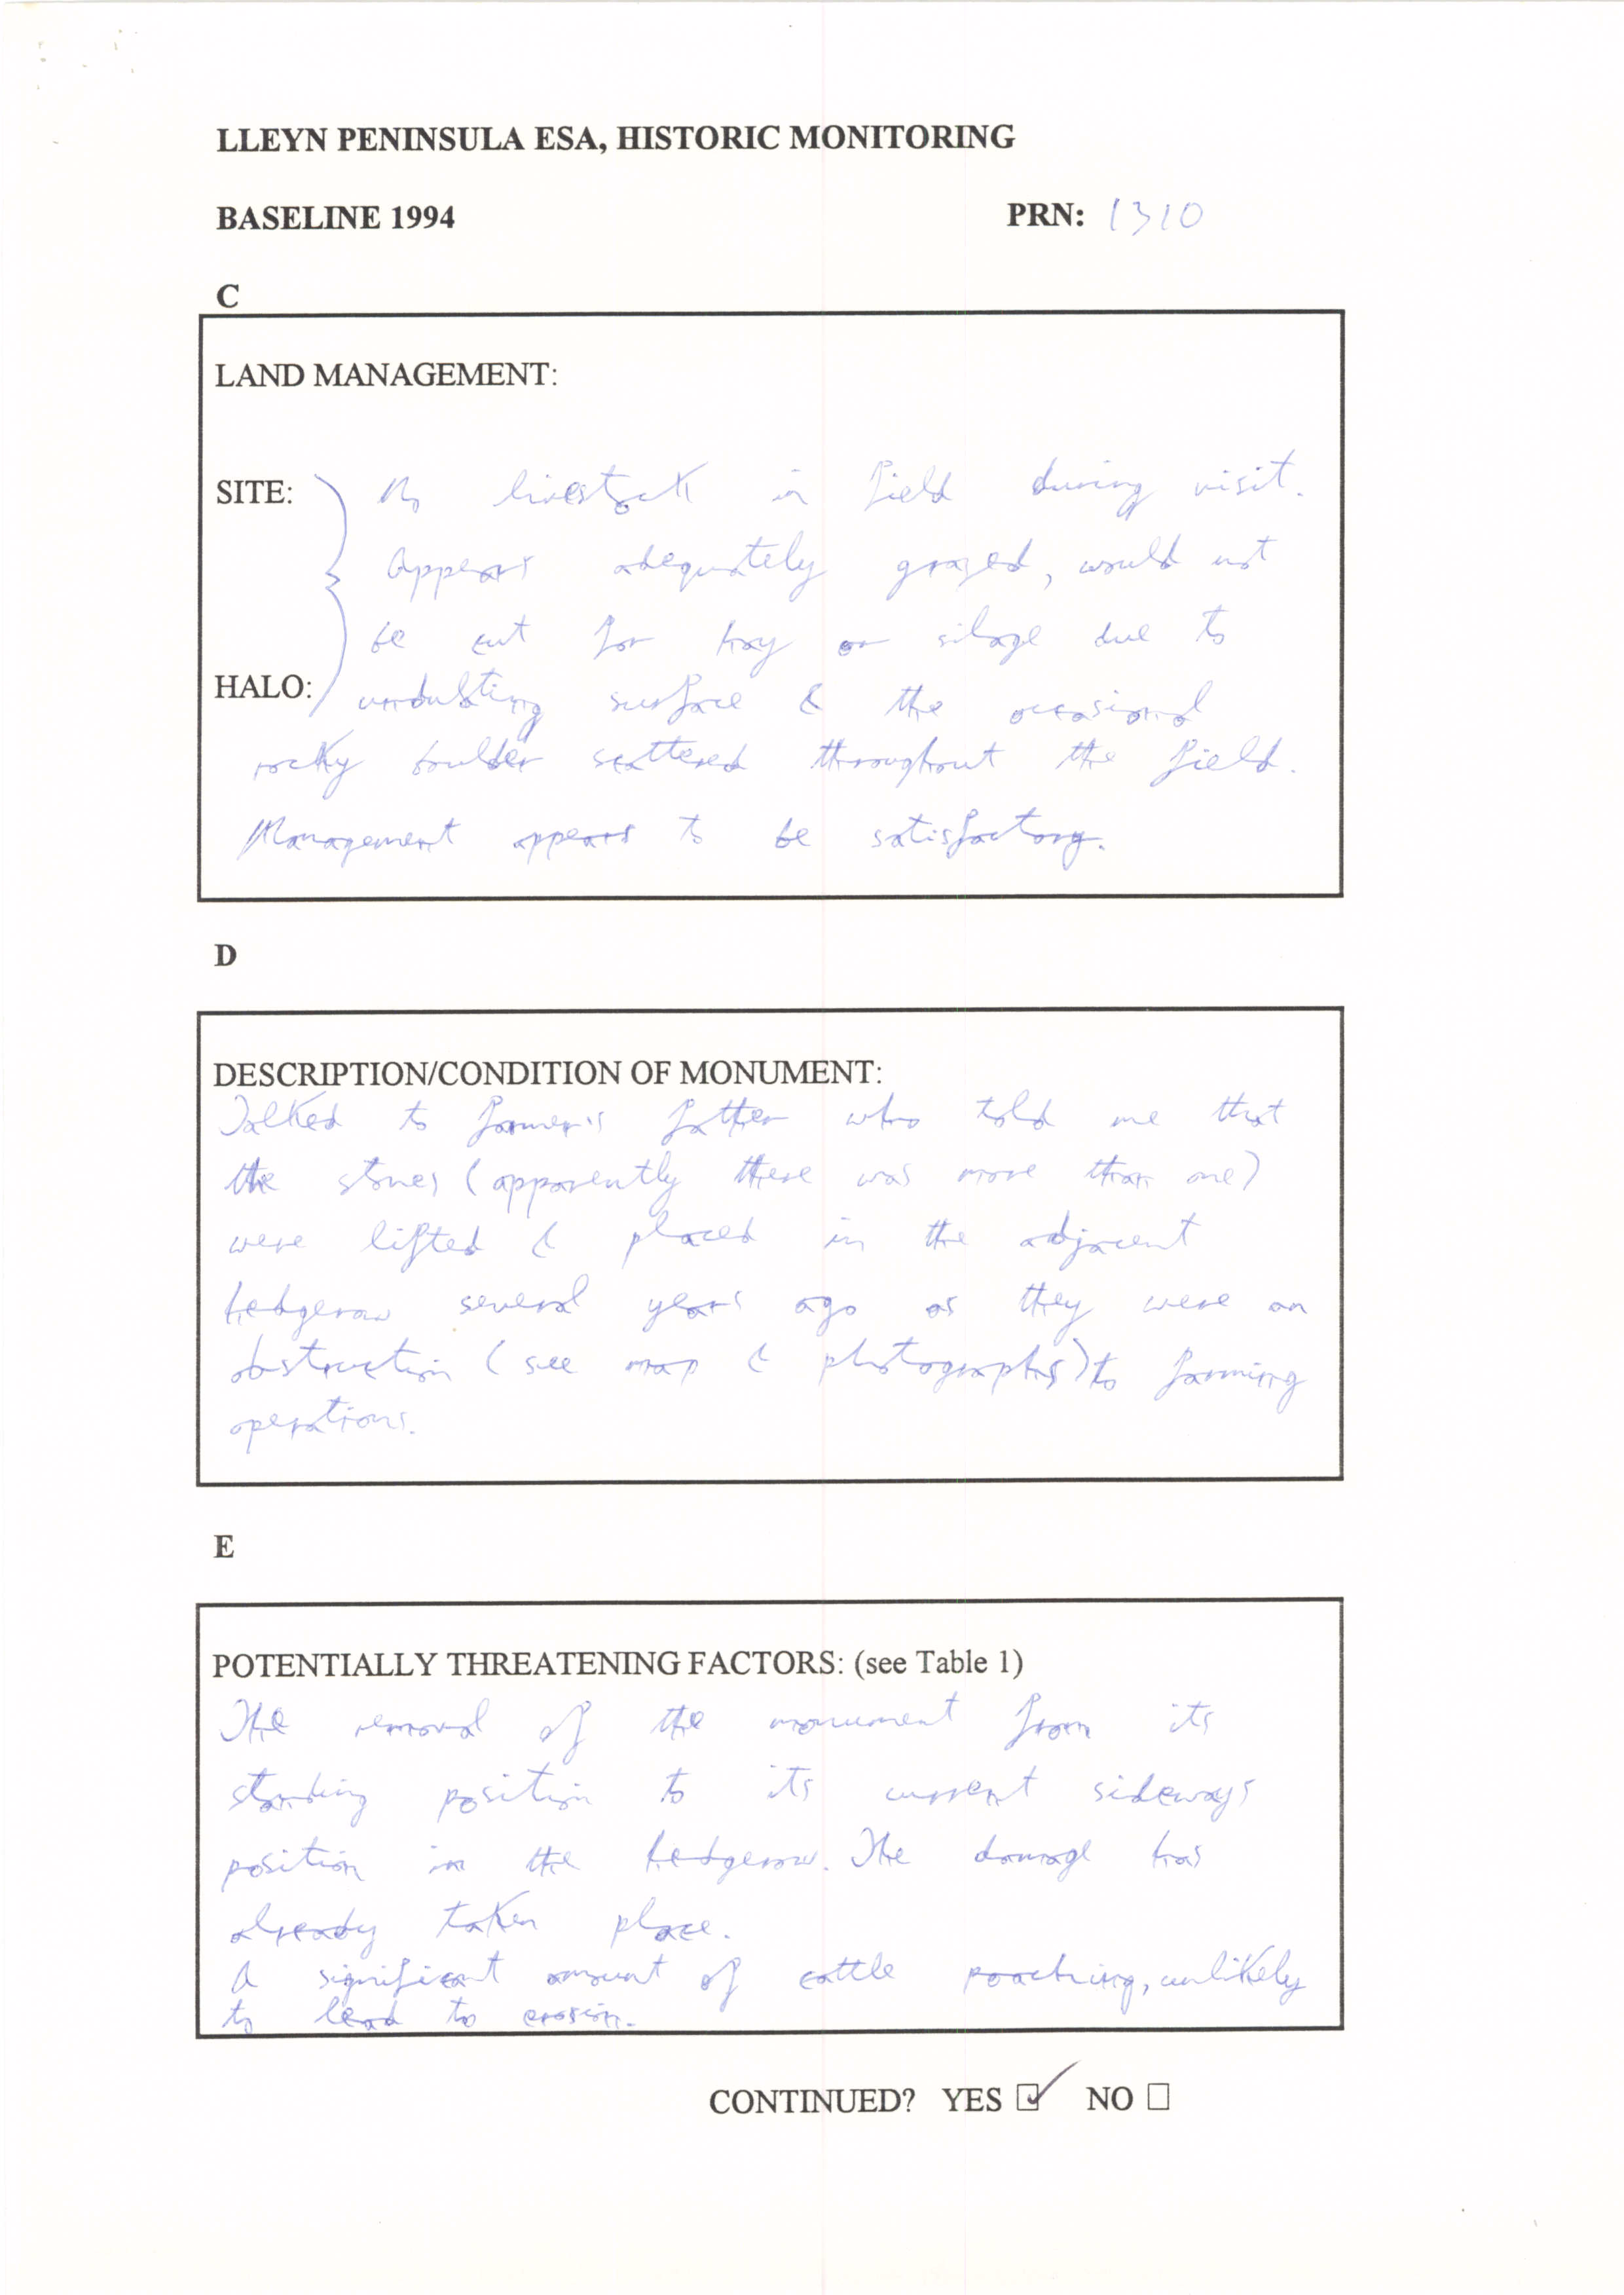 LLEYN PENINSULA ESA, HISTORIC MONITORING
BASELINE 1994 PRN: 1310
C
LAND MANAGEMENT:
SITE: No livestock in field during visit.
Appears adequately grazed, would not
be cut for hay or silage due to
HALO: undulating surface & the occasional
rocky boulder scattered throughout the field.
Management appears to be satisfactory.
D
DESCRIPTION/CONDITION OF MONUMENT:
Talked to farmer's father who told me that
the stones (apparently there was more than one)
were lifted & placed in the adjacent
hedgerow several years ago as they were an
obstruction (see map & photographs) to farming
operations.
E
POTENTIALLY THREATENING FACTORS: (see Table 1)
The removal of the monument from its
standing position to its current sideways
position in the hedgerow. The damage has
already taken place.
A significant amount of cattle poaching, unlikely
to lead to erosion.
CONTINUED? YES ☑ NO ☐